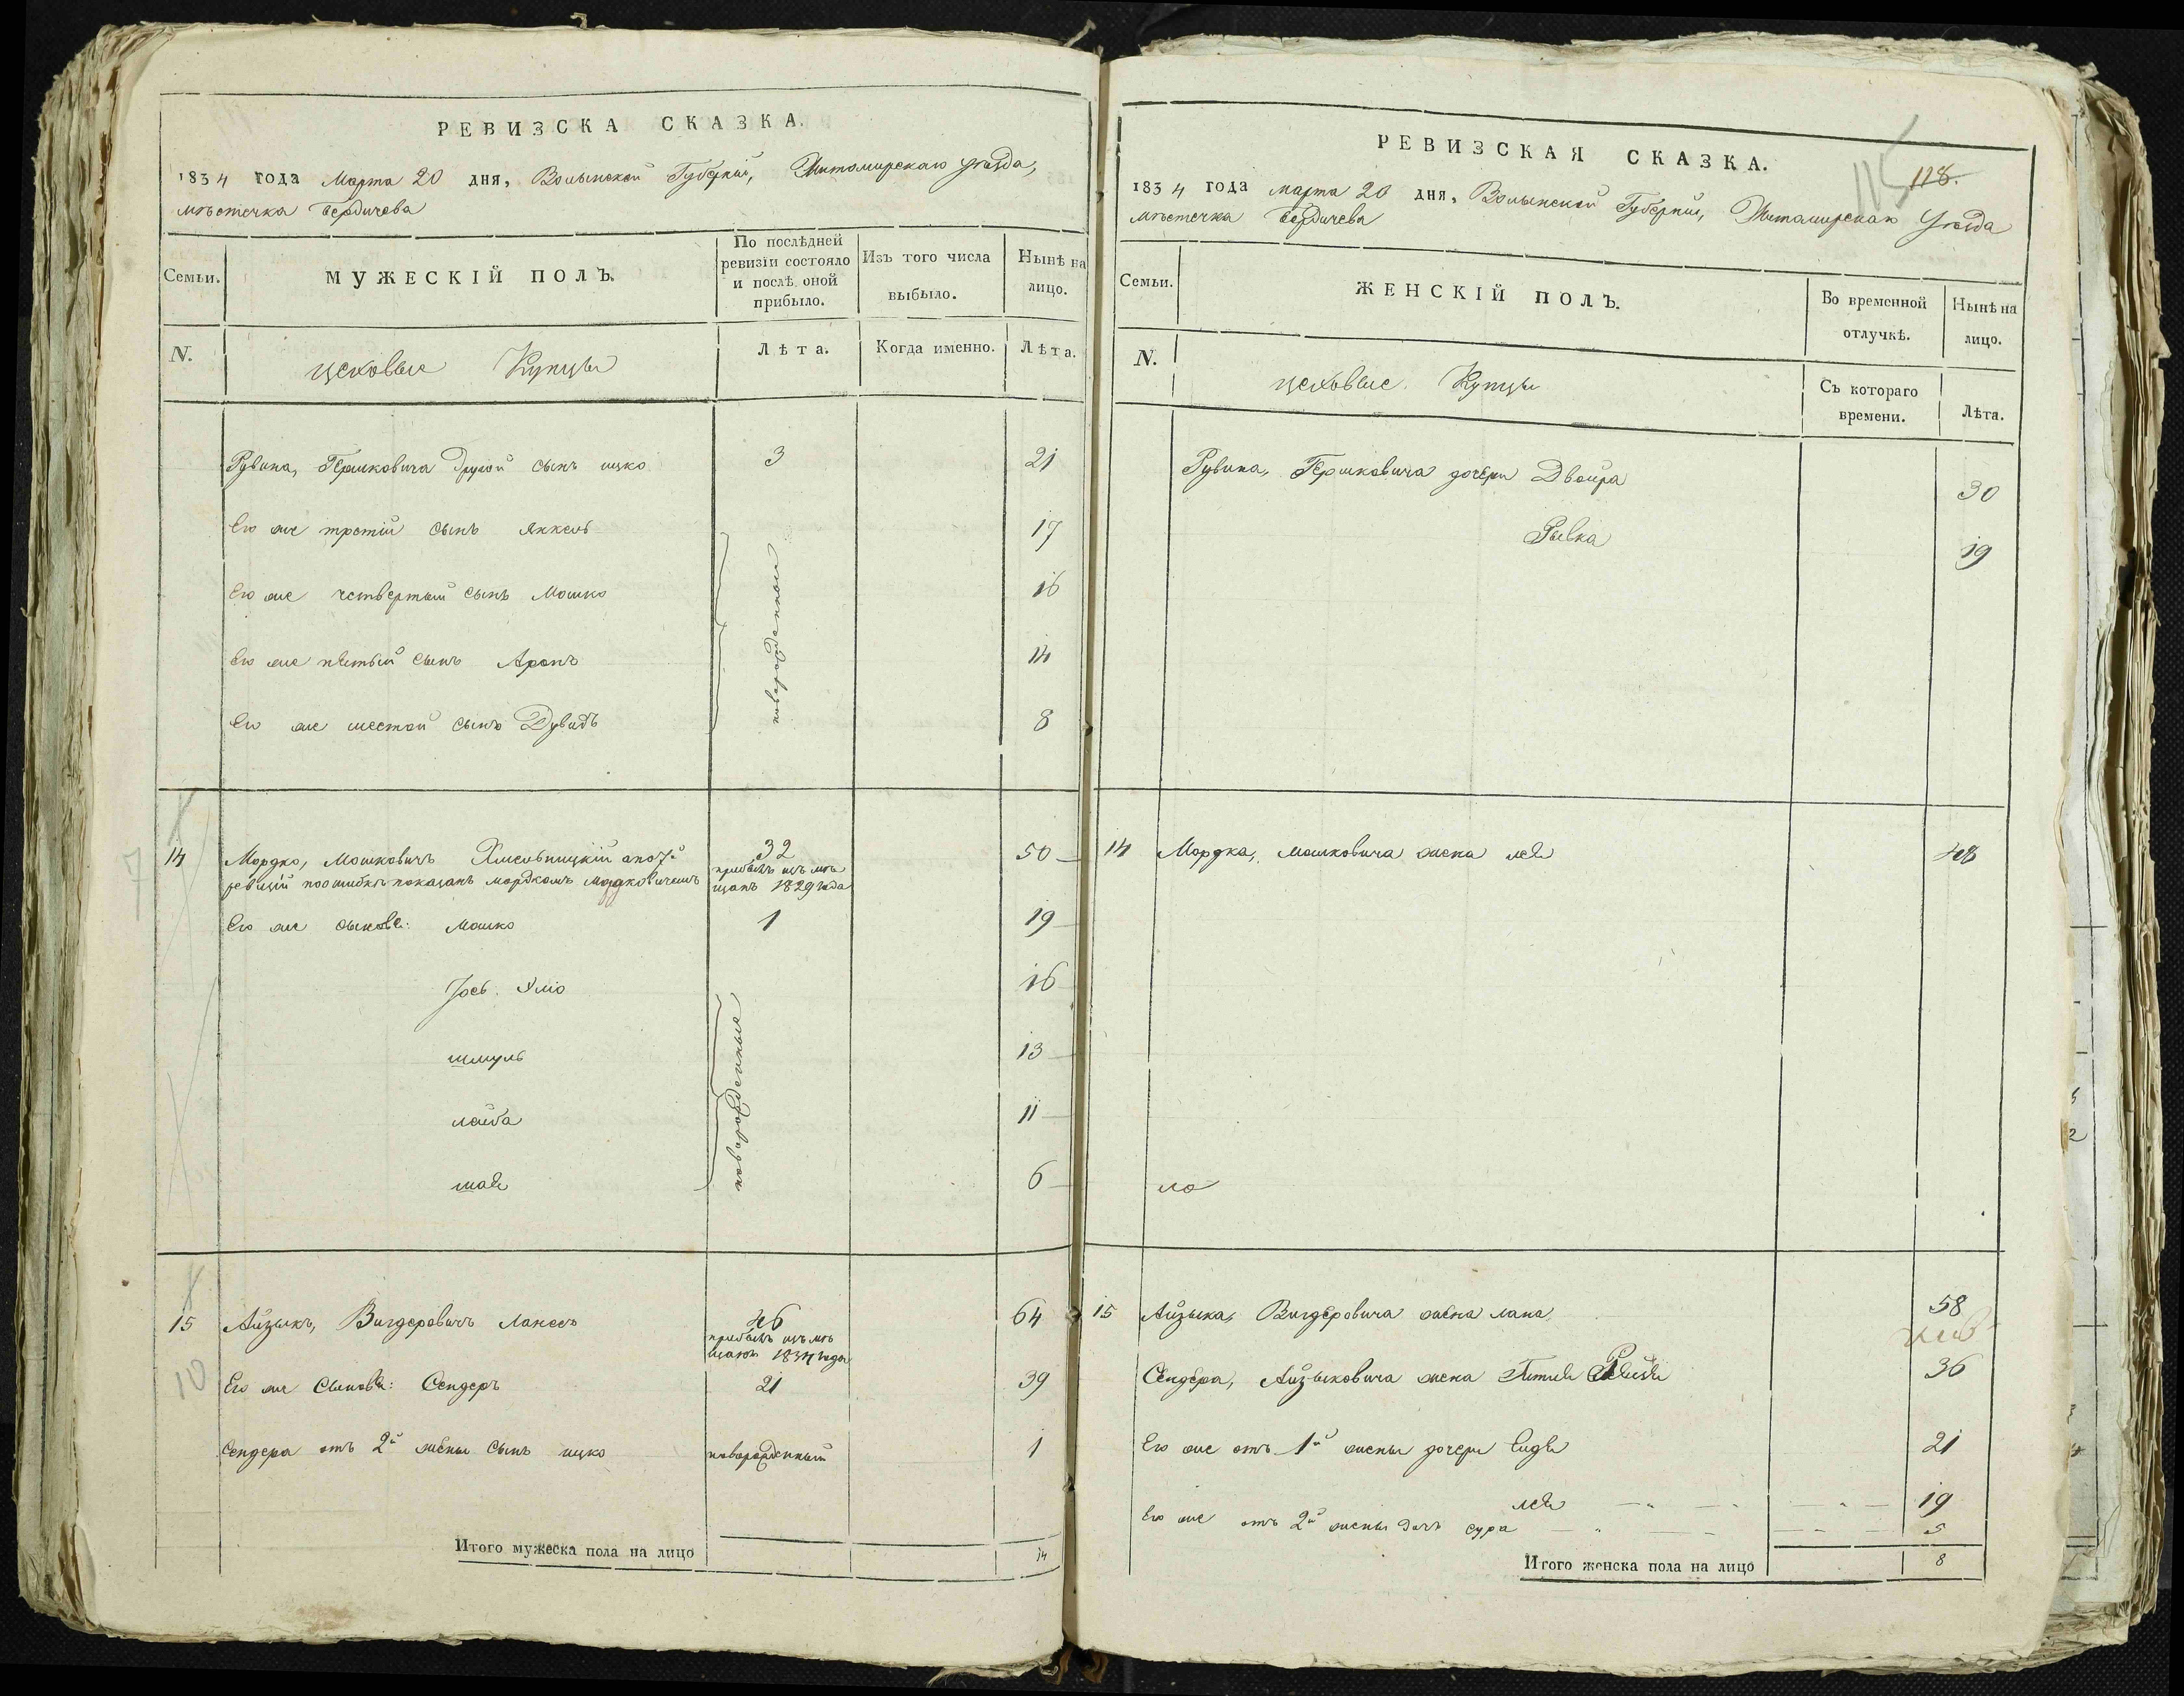 РЕВИЗСКА СКАЗКА.
1834 года Марта 20 дня, Волынской Губернии, Житомирскаго уезда,
местечка Бердичева
Семьи.
МУЖЕСКІЙ ПОЛЪ.
По послѣдней
ревизіи состояло
и послѣ оной
прибыло.
Изъ того числа
выбыло.
Нынѣ на
лицо.
N.
цеховые Купцы
Лѣта.
Когда именно.
Лѣта.
Рувина, Гершковича другой сынъ ицко 3 21
Его же третій сынъ Янкель 17
Его же четвертый сынъ Мошко 16
Его же пятый сынъ Аронъ 14
Его же шестой сынъ Дувидъ 8
новорожденныи
14 Мордко, Мошковичъ Хмельницкій апо 7й 32 50
ревизіи поошибкѣ показанъ мордкомъ мордковичемъ прибылъ изъ мѣ
щанъ 1829 года
Его же сыновья: Мошко 1 19
Іось 16
шмуль 13
лейба 11
шая 6
новорожденныя
7
15 Айзыкъ, Вигдоровичъ 46 64
прибылъ изъ мѣ
щанъ 1834 года
10 Его же Сыновья: Сендеръ 21 39
Сендера отъ 2й жены Сынъ ицко новорожденный 1
Итого мужеска пола на лицо 14
РЕВИЗСКАЯ СКАЗКА.
115
118.
1834 года марта 20 дня, Волынской Губернии, Житомирскаго Уезда
местечка Бердичева
Семьи.
ЖЕНСКІЙ ПОЛЪ.
Во временной
отлучкѣ.
Нынѣ на
лицо.
N.
цеховые Купцы
Съ котораго
времени.
Лѣта.
Рувина, Гершковича дочери Двойра 30
Рывка 19
14 Мордка, мошковича жена лея 48
15 Айзыка, Вигдоровича жена хана 58
Сендера, Айзыковича жена 36
Его же отъ 1й жены дочери 21
лея 19
Его же отъ 2й жены дочь сура 5
Итого женска пола на лицо 8